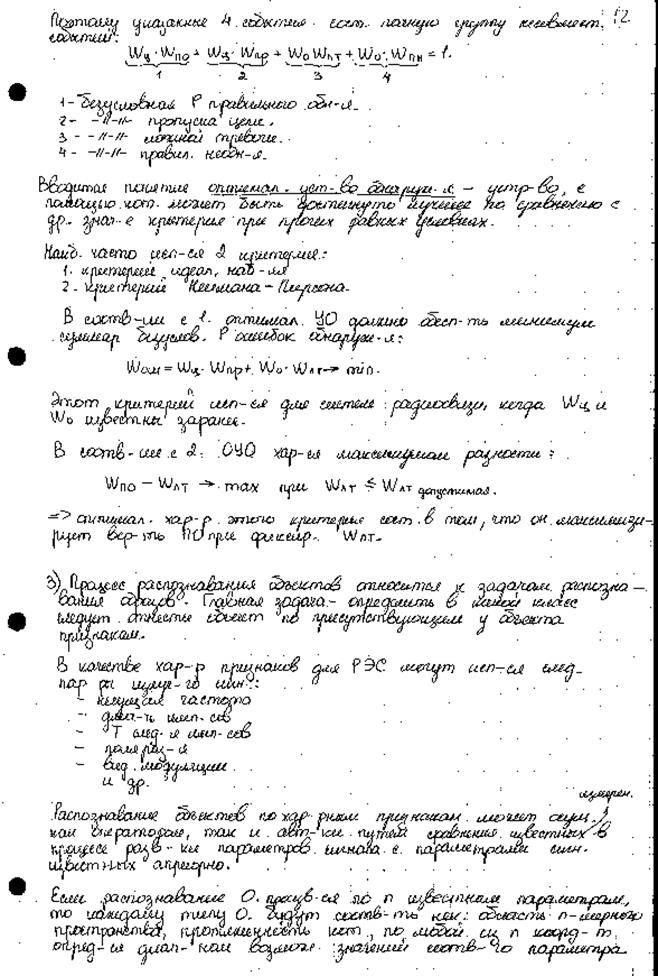 12
Поэтому указанные 4 события сост. полную группу несовмест.
событий:
Wц·Wпо + Wц·Wпр + Wо Wлт + Wо·Wпн = 1.
1 2 3 4
1 - безусловная P правильного обн-я.
2 - -//-//- пропуска цели.
3 - -//-//- ложной тревоги.
4 - -//-//- правил. необн-я.
Вводится понятие оптимал. уст-во обнаруж-я - устр-во, с
помощью кот. может быть достигнуто лучшее по сравнению с
др. знач-е критерия при прочих равных условиях.
Наиб. часто исп-ся 2 критерия:
1. критерий идеал. наб-ля
2 - критерий Неймана-Пирсона.
В соотв-ии с 1. оптимал. УО должно обесп-ть минимум
суммар безуслов. P ошибок обнаруж-я:
Wош = Wц·Wпр + Wо·Wлт → min.
Этот критерий исп-ся для систем радиосвязи, когда Wц и
Wо известны заранее.
В соотв-ии с 2. ОУО хар-ся максимумом разности:
Wпо - Wлт → max при Wлт ≤ Wлт допустимая.
=> оптимал. хар-р этого критерия сост. в том, что он максимизи-
рует вер-ть ПО при фиксир. Wлт.
3) Процесс распознавания объектов относится к задачам распозна-
вания образов. Главная задача - определить в какой класс
следует отнести объект по присутствующим у объекта
признакам.
В качестве хар-р признаков для РЭС могут исп-ся след.
пар-ры излуч-го сиг.:
- несущая частота
- длит-ть имп-сов
- T след-я имп-сов
- поляриз-я
- вид модуляции
и др.
измерен.
Распознавание объектов по хар-рным признакам может осущ.
как оператором, так и авт-ки путём сравнения известных в
процессе разв-ки параметров сигнала с параметрами сигн.
известных априорно.
Если распознавание О. произв-ся по n известным параметрам,
то каждому типу О. будут соотв-ть нек. область n-мерного
пространства, протяженность кот. по любой из n коорд-т
опред-ся диап-ном возможн. значений соотв-го параметра